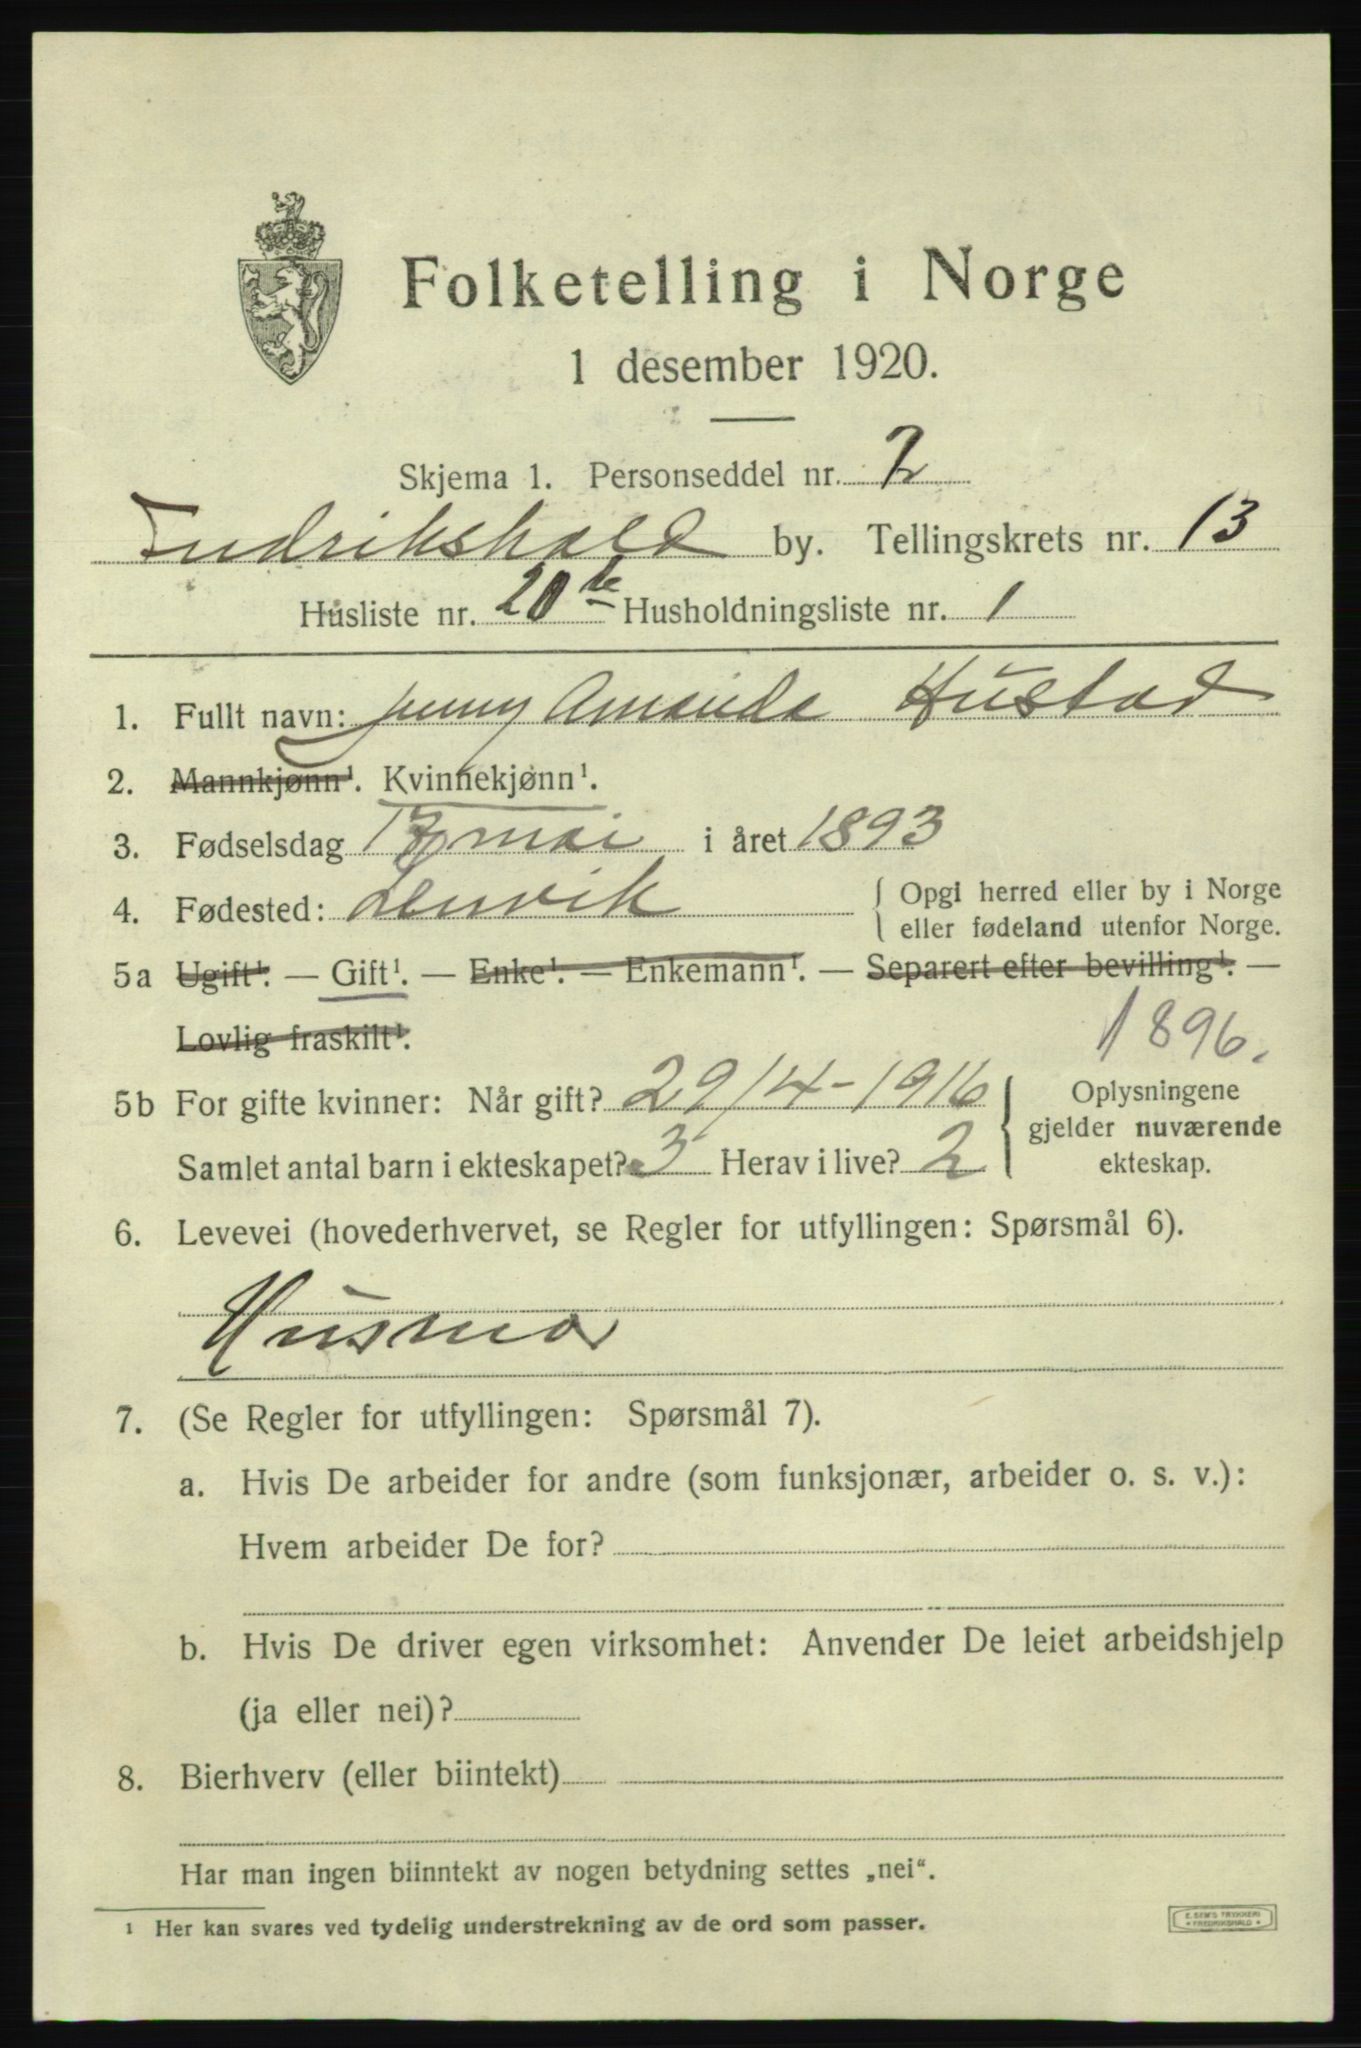 Folketelling i Norge
1 desember 1920.
Skjema 1. Personseddel nr. 2
Fredrikshald by. Tellingskrets nr. 13
Husliste nr. 20 Husholdningsliste nr. 1
1. Fullt navn: Jenny Amanda Hustad
2. Mannkjønn¹. Kvinnekjønn¹.
3. Fødselsdag 17 mai i året 1893
4. Fødested: Lenvik { Opgi herred eller by i Norge
eller fødeland utenfor Norge.
5a Ugift¹. — Gift¹. — Enke¹. — Enkemann¹. — Separert efter bevilling¹. —
Lovlig fraskilt¹.
1896.
5b For gifte kvinner: Når gift? 29/4-1916 { Oplysningene
gjelder nuværende
ekteskap.
Samlet antal barn i ekteskapet? 3 Herav i live? 2
6. Levevei (hovederhvervet, se Regler for utfyllingen: Spørsmål 6).
Husmor
7. (Se Regler for utfyllingen: Spørsmål 7).
a. Hvis De arbeider for andre (som funksjonær, arbeider o. s. v.):
Hvem arbeider De for?
b. Hvis De driver egen virksomhet: Anvender De leiet arbeidshjelp
(ja eller nei)?
8. Bierhverv (eller biintekt)
Har man ingen biinntekt av nogen betydning settes „nei“.
¹ Her kan svares ved tydelig understrekning av de ord som passer.
E. SEM'S TRYKKERI
* FREDRIKSHALD *